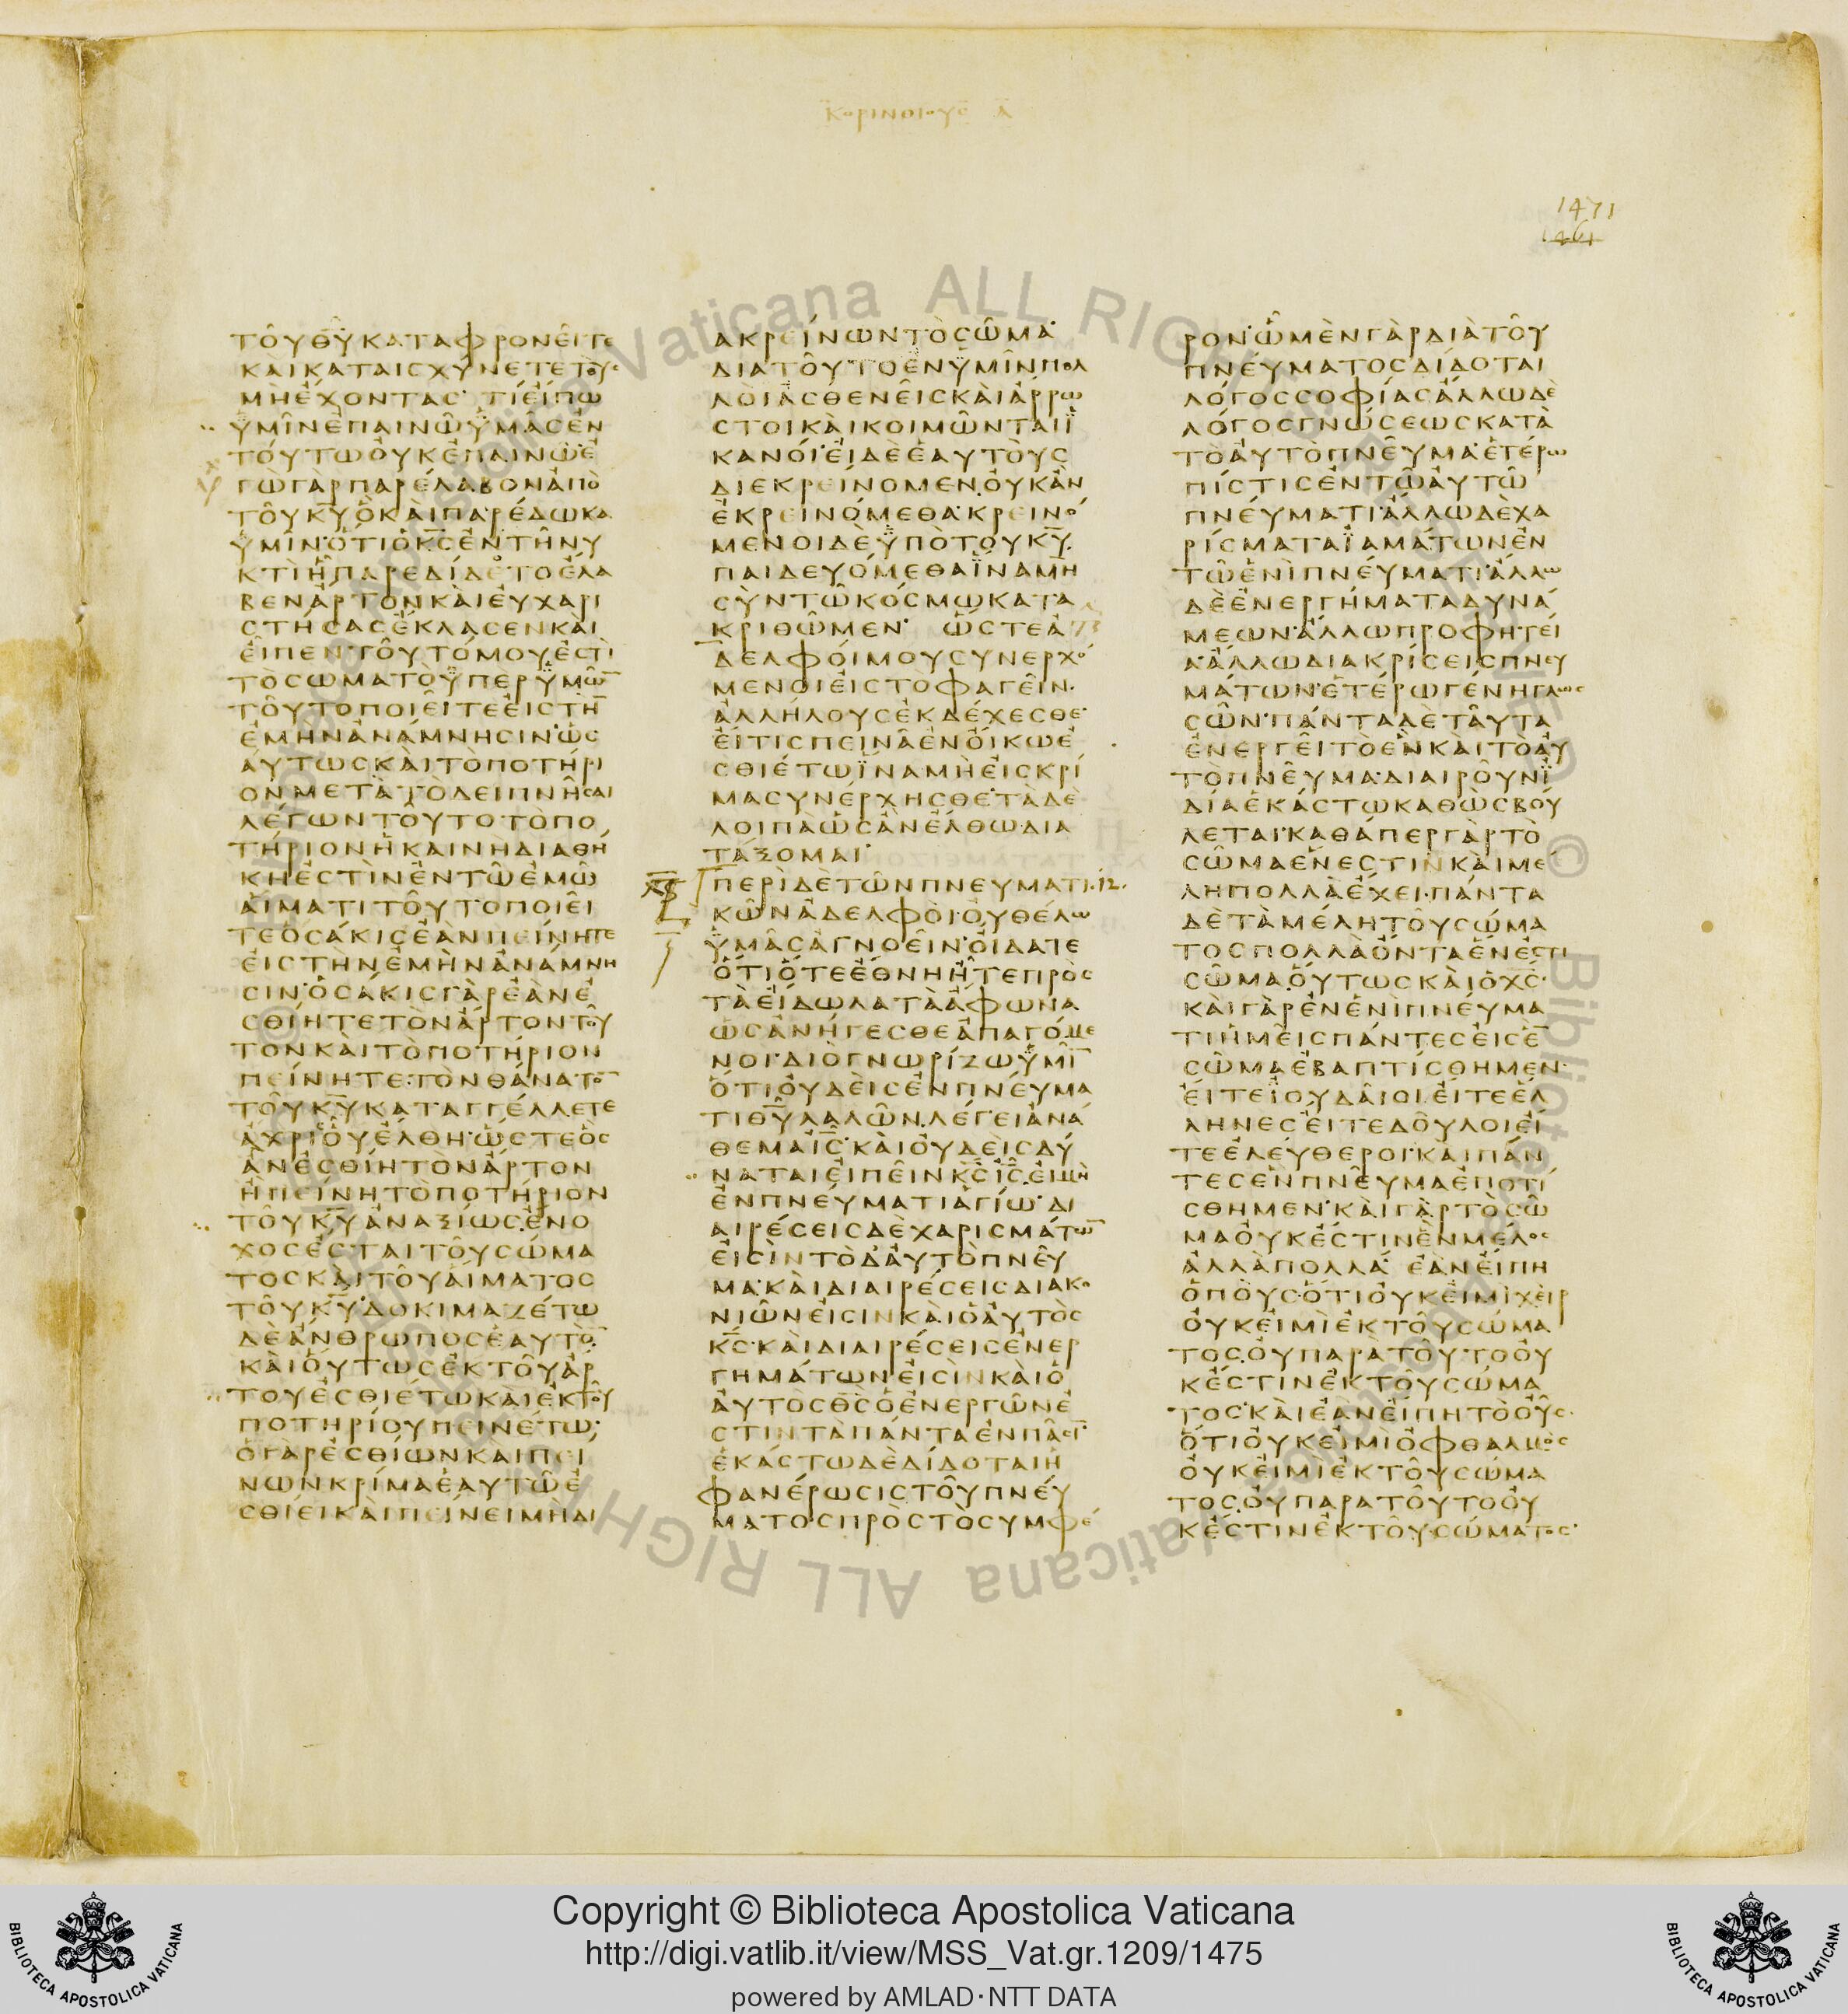 ΚΟΡΙΝΘΙΟΥΣ Α
1471
1461
ΤΟΥΘΥΚΑΤΑΦΡΟΝΕΙΤΕ
ΚΑΙΚΑΤΑΙΣΧΥΝΕΤΕΤΟΥΣ
ΜΗΕΧΟΝΤΑΣ ΤΙΕΙΠΩ
ΥΜΙΝΕΠΑΙΝΩΥΜΑΣΕΝ
ΤΟΥΤΩΟΥΚΕΠΑΙΝΩΕ
ΓΩΓΑΡΠΑΡΕΛΑΒΟΝΑΠΟ
ΤΟΥΚΥΟΚΑΙΠΑΡΕΔΩΚΑ
ΥΜΙΝΟΤΙΟΚΣΕΝΤΗΝΥ
ΚΤΙΗΠΑΡΕΔΙΔΕΤΟΕΛΑ
ΒΕΝΑΡΤΟΝΚΑΙΕΥΧΑΡΙ
ΣΤΗΣΑΣΕΚΛΑΣΕΝΚΑΙ
ΕΙΠΕΝΤΟΥΤΟΜΟΥΕΣΤΙ
ΤΟΣΩΜΑΤΟΥΠΕΡΥΜΩ̅
ΤΟΥΤΟΠΟΙΕΙΤΕΕΙΣΤΗ̅
ΕΜΗΝΑΝΑΜΝΗΣΙΝΩΣ
ΑΥΤΩΣΚΑΙΤΟΠΟΤΗΡΙ
ΟΝΜΕΤΑΤΟΔΕΙΠΝΗΣΑΙ
ΛΕΓΩΝΤΟΥΤΟΤΟΠΟ
ΤΗΡΙΟΝΗΚΑΙΝΗΔΙΑΘΗ
ΚΗΕΣΤΙΝΕΝΤΩΕΜΩ
ΑΙΜΑΤΙΤΟΥΤΟΠΟΙΕΙ
ΤΕΟΣΑΚΙΣΕΑΝΠΕΙΝΗΤΕ
ΕΙΣΤΗΝΕΜΗΝΑΝΑΜΝΗ
ΣΙΝΟΣΑΚΙΣΓΑΡΕΑΝΕ
ΣΘΙΗΤΕΤΟΝΑΡΤΟΝΤΟΥ
ΤΟΝΚΑΙΤΟΠΟΤΗΡΙΟΝ
ΠΕΙΝΗΤΕΤΟΝΘΑΝΑΤΟ̅
ΤΟΥΚΥΚΑΤΑΓΓΕΛΛΕΤΕ
ΑΧΡΙΟΥΕΛΘΗΩΣΤΕΟΣ
ΑΝΕΣΘΙΗΤΟΝΑΡΤΟΝ
ΗΠΕΙΝΗΤΟΠΟΤΗΡΙΟΝ
ΤΟΥΚΥΑΝΑΞΙΩΣΕΝΟ
ΧΟΣΕΣΤΑΙΤΟΥΣΩΜΑ
ΤΟΣΚΑΙΤΟΥΑΙΜΑΤΟΣ
ΤΟΥΚΥΔΟΚΙΜΑΖΕΤΩ
ΔΕΑΝΘΡΩΠΟΣΕΑΥΤΟ̅
ΚΑΙΟΥΤΩΣΕΚΤΟΥΑΡ
ΤΟΥΕΣΘΙΕΤΩΚΑΙΕΚΤΟΥ
ΠΟΤΗΡΙΟΥΠΕΙΝΕΤΩ
ΟΓΑΡΕΣΘΙΩΝΚΑΙΠΕΙ
ΝΩΝΚΡΙΜΑΕΑΥΤΩΕ
ΣΘΙΕΙΚΑΙΠΕΙΝΕΙΜΗΔΙ
ΑΚΡΕΙΝΩΝΤΟΣΩΜΑ
ΔΙΑΤΟΥΤΟΕΝΥΜΙΝΠΟΛ
ΛΟΙΑΣΘΕΝΕΙΣΚΑΙΑΡΡΩ
ΣΤΟΙΚΑΙΚΟΙΜΩΝΤΑΙΙ
ΚΑΝΟΙΕΙΔΕΕΑΥΤΟΥΣ
ΔΙΕΚΡΕΙΝΟΜΕΝΟΥΚΑΝ
ΕΚΡΕΙΝΟΜΕΘΑΚΡΕΙΝΟ
ΜΕΝΟΙΔΕΥΠΟΤΟΥΚΥ
ΠΑΙΔΕΥΟΜΕΘΑΪΝΑΜΗ
ΣΥΝΤΩΚΟΣΜΩΚΑΤΑ
ΚΡΙΘΩΜΕΝ ΩΣΤΕΑ
ΔΕΛΦΟΙΜΟΥΣΥΝΕΡΧΟ
ΜΕΝΟΙΕΙΣΤΟΦΑΓΕΙΝ
ΑΛΛΗΛΟΥΣΕΚΔΕΧΕΣΘΕ
ΕΙΤΙΣΠΕΙΝΑΕΝΟΙΚΩΕ
ΣΘΙΕΤΩΪΝΑΜΗΕΙΣΚΡΙ
ΜΑΣΥΝΕΡΧΗΣΘΕΤΑΔΕ
ΛΟΙΠΑΩΣΑΝΕΛΘΩΔΙΑ
ΤΑΞΟΜΑΙ
ΠΕΡΙΔΕΤΩΝΠΝΕΥΜΑΤΙ 12.
ΚΩΝΑΔΕΛΦΟΙΟΥΘΕΛΩ
ΥΜΑΣΑΓΝΟΕΙΝΟΙΔΑΤΕ
ΟΤΙΟΤΕΕΘΝΗΗΤΕΠΡΟΣ
ΤΑΕΙΔΩΛΑΤΑΑΦΩΝΑ
ΩΣΑΝΗΓΕΣΘΕΑΠΑΓΟΜΕ
ΝΟΙΔΙΟΓΝΩΡΙΖΩΥΜΙ̅
ΟΤΙΟΥΔΕΙΣΕΝΠΝΕΥΜΑ
ΤΙΘΥΛΑΛΩΝΛΕΓΕΙΑΝΑ
ΘΕΜΑΙΣΚΑΙΟΥΔΕΙΣΔΥ
ΝΑΤΑΙΕΙΠΕΙΝΚΣΙΣΕΙΜΗ
ΕΝΠΝΕΥΜΑΤΙΑΓΙΩΔΙ
ΑΙΡΕΣΕΙΣΔΕΧΑΡΙΣΜΑΤΩ̅
ΕΙΣΙΝΤΟΔΑΥΤΟΠΝΕΥ
ΜΑΚΑΙΔΙΑΙΡΕΣΕΙΣΔΙΑΚΟ
ΝΙΩΝΕΙΣΙΝΚΑΙΟΑΥΤΟΣ
ΚΣΚΑΙΔΙΑΙΡΕΣΕΙΣΕΝΕΡ
ΓΗΜΑΤΩΝΕΙΣΙΝΚΑΙΟ
ΑΥΤΟΣΘΣΟΕΝΕΡΓΩΝΕ
ΣΤΙΝΤΑΠΑΝΤΑΕΝΠΑΣΙ̅
ΕΚΑΣΤΩΔΕΔΙΔΟΤΑΙΗ
ΦΑΝΕΡΩΣΙΣΤΟΥΠΝΕΥ
ΜΑΤΟΣΠΡΟΣΤΟΣΥΜΦΕ
ΡΟΝΩΜΕΝΓΑΡΔΙΑΤΟΥ
ΠΝΕΥΜΑΤΟΣΔΙΔΟΤΑΙ
ΛΟΓΟΣΣΟΦΙΑΣΑΛΛΩΔΕ
ΛΟΓΟΣΓΝΩΣΕΩΣΚΑΤΑ
ΤΟΑΥΤΟΠΝΕΥΜΑΕΤΕΡΩ
ΠΙΣΤΙΣΕΝΤΩΑΥΤΩ
ΠΝΕΥΜΑΤΙΑΛΛΩΔΕΧΑ
ΡΙΣΜΑΤΑΪΑΜΑΤΩΝΕΝ
ΤΩΕΝΙΠΝΕΥΜΑΤΙΑΛΛΩ
ΔΕΕΝΕΡΓΗΜΑΤΑΔΥΝΑ
ΜΕΩΝΑΛΛΩΠΡΟΦΗΤΕΙ
ΑΑΛΛΩΔΙΑΚΡΙΣΕΙΣΠΝΕΥ
ΜΑΤΩΝΕΤΕΡΩΓΕΝΗΓΛΩΣ
ΣΩΝΠΑΝΤΑΔΕΤΑΥΤΑ
ΕΝΕΡΓΕΙΤΟΕΝΚΑΙΤΟΑΥ
ΤΟΠΝΕΥΜΑΔΙΑΙΡΟΥΝΪ
ΔΙΑΕΚΑΣΤΩΚΑΘΩΣΒΟΥ
ΛΕΤΑΙΚΑΘΑΠΕΡΓΑΡΤΟ
ΣΩΜΑΕΝΕΣΤΙΝΚΑΙΜΕ
ΛΗΠΟΛΛΑΕΧΕΙΠΑΝΤΑ
ΔΕΤΑΜΕΛΗΤΟΥΣΩΜΑ
ΤΟΣΠΟΛΛΑΟΝΤΑΕΝΕΣΤΙ
ΣΩΜΑΟΥΤΩΣΚΑΙΟΧΣ
ΚΑΙΓΑΡΕΝΕΝΙΠΝΕΥΜΑ
ΤΙΗΜΕΙΣΠΑΝΤΕΣΕΙΣΕ̅
ΣΩΜΑΕΒΑΠΤΙΣΘΗΜΕΝ
ΕΙΤΕΪΟΥΔΑΙΟΙΕΙΤΕΕΛ
ΛΗΝΕΣΕΙΤΕΔΟΥΛΟΙΕΙ
ΤΕΕΛΕΥΘΕΡΟΙΚΑΙΠΑΝ
ΤΕΣΕΝΠΝΕΥΜΑΕΠΟΤΙ
ΣΘΗΜΕΝΚΑΙΓΑΡΤΟΣΩ
ΜΑΟΥΚΕΣΤΙΝΕΝΜΕΛΟΣ
ΑΛΛΑΠΟΛΛΑ ΕΑΝΕΙΠΗ
ΟΠΟΥΣΟΤΙΟΥΚΕΙΜΙΧΕΙΡ
ΟΥΚΕΙΜΙΕΚΤΟΥΣΩΜΑ
ΤΟΣΟΥΠΑΡΑΤΟΥΤΟΟΥ
ΚΕΣΤΙΝΕΚΤΟΥΣΩΜΑ
ΤΟΣΚΑΙΕΑΝΕΙΠΗΤΟΟΥΣ
ΟΤΙΟΥΚΕΙΜΙΟΦΘΑΛΜΟΣ
ΟΥΚΕΙΜΙΕΚΤΟΥΣΩΜΑ
ΤΟΣΟΥΠΑΡΑΤΟΥΤΟΟΥ
ΚΕΣΤΙΝΕΚΤΟΥΣΩΜΑΤΟΣ
Copyright © Biblioteca Apostolica Vaticana
http://digi.vatlib.it/view/MSS_Vat.gr.1209/1475
powered by AMLAD·NTT DATA
BIBLIOTECA APOSTOLICA VATICANA
BIBLIOTECA APOSTOLICA VATICANA